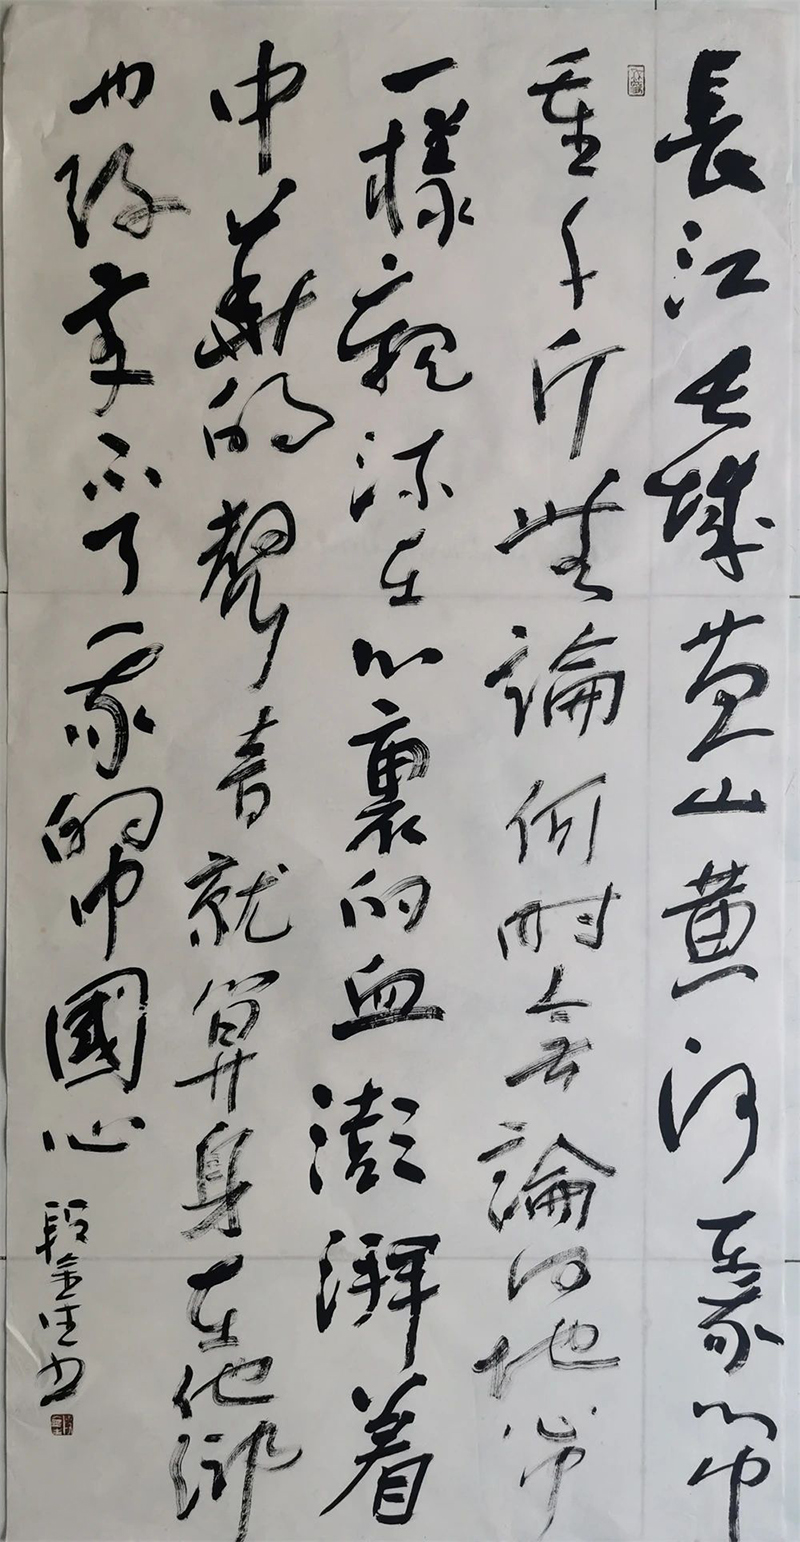 長江长城黄山黄河在我心中
重千斤無論何时无論何地心中
一樣親流在心裏的血澎湃着
中華的聲音就算身在他鄉
也改变不了我的中國心
段金生书